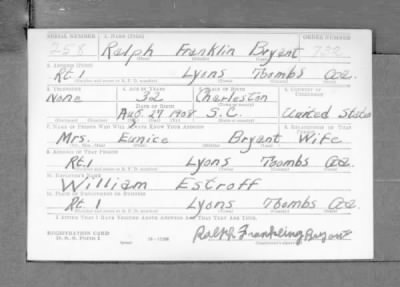 SERIAL NUMBER 1. NAME (Print) ORDER NUMBER
258 Ralph Franklin Bryant
(First) (Middle) (Last)
2. ADDRESS (Print)
Rt. 1 Lyons Toombs Ga.
3. TELEPHONE 4. AGE IN YEARS 5. PLACE OF BIRTH 6. COUNTRY OF CITIZENSHIP
None 32 Charleston
DATE OF BIRTH
Aug. 27 1908 S.C. United States
7. NAME OF PERSON WHO WILL ALWAYS KNOW YOUR ADDRESS 8. RELATIONSHIP OF THAT PERSON
Mrs. Eunice Bryant Wife
9. ADDRESS OF THAT PERSON
Rt. 1 Lyons Toombs Ga.
10. EMPLOYER'S NAME
William Estroff
11. PLACE OF EMPLOYMENT OR BUSINESS
Rt. 1 Lyons Toombs Ga.
I AFFIRM THAT I HAVE VERIFIED ABOVE ANSWERS AND THAT THEY ARE TRUE.
REGISTRATION CARD
D. S. S. Form 1
Ralph Frankling Bryant